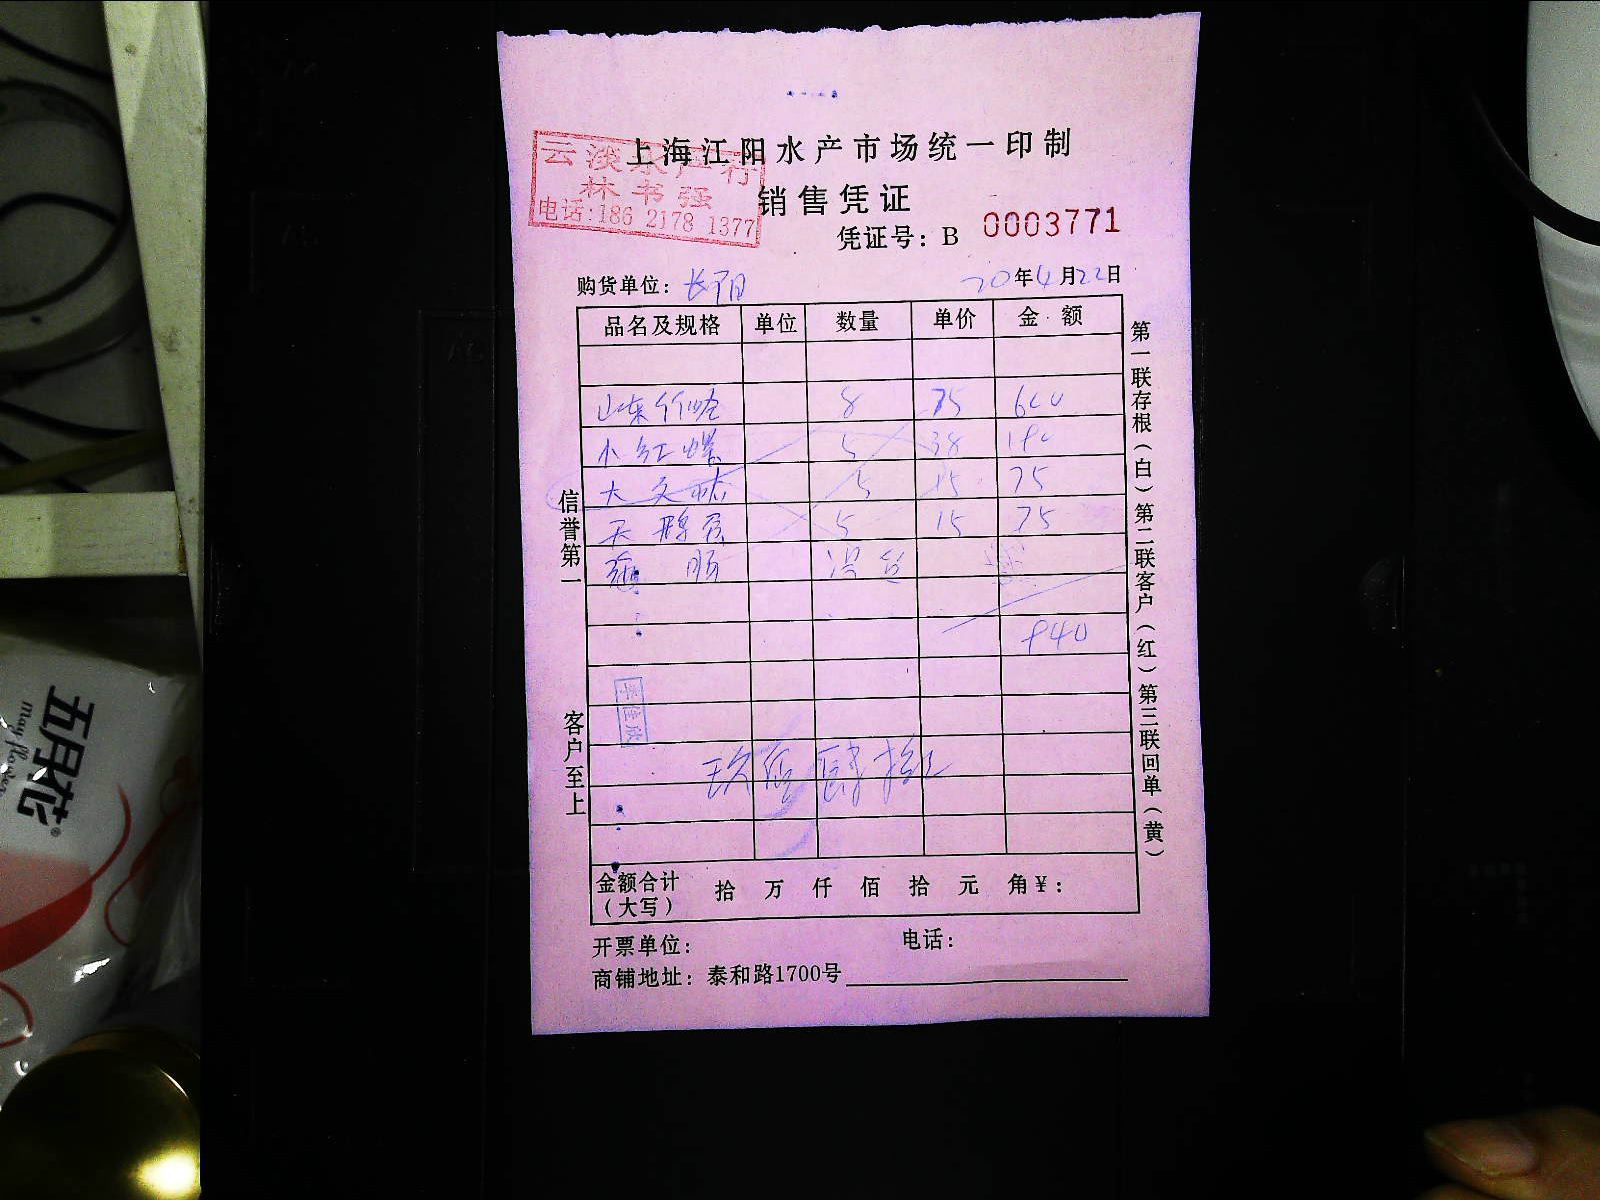 上海江阳水产市场统一印制
云淡水产行
林书强
电话:186 2178 1377
销售凭证
凭证号：B 0003771
购货单位：长阳 20年4月22日
品名及规格 单位 数量 单价 金额
山东竹蛤 8 75 600
小红螺 5 38 190
大文蛤 5 15 75
天鹅蛋 5 15 75
940
玖佰肆拾
金额合计（大写） 拾 万 仟 佰 拾 元 角 ¥：
开票单位： 电话：
商铺地址：泰和路1700号
信誉第一
客户至上
第一联存根（白）第二联客户（红）第三联回单（黄）
五月花®
may flower